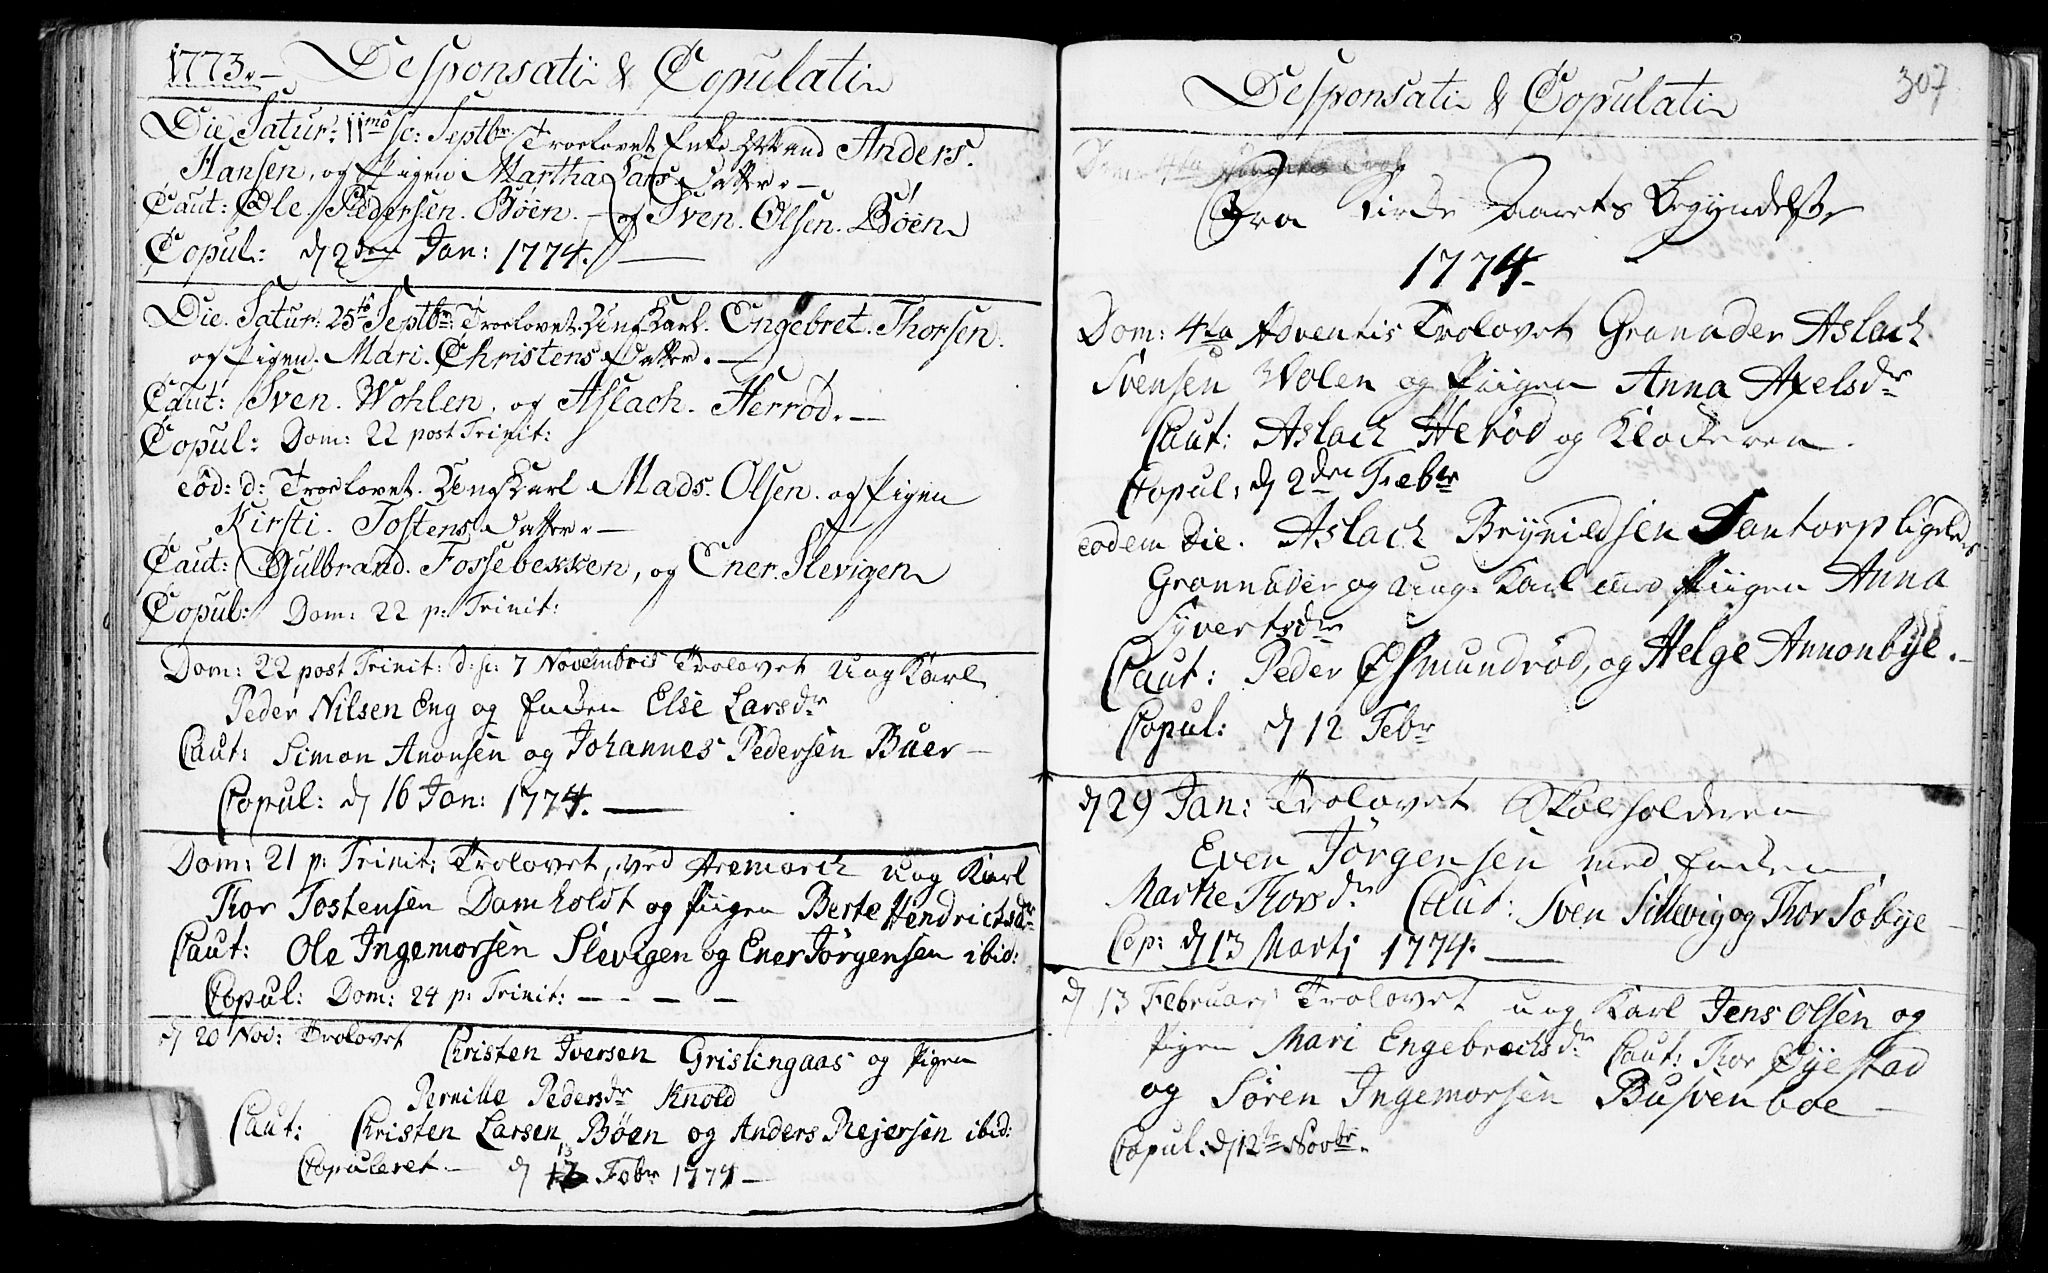 1773.- Desponsati & Copulati
Die Satur: 11mo sc: Septbr. Troelovet Enke Mand Anders.
Hansen, og Pigen Martha Lars Datter. -
Caut: Ole Pedersen. Böen. - og Sven. Olsen. Böen
Copul: d 2den Jan: 1774. -
Die. Satur: 25te Septbr. Troelovet. Ung Karl. Engebret. Thorsen.
og Pigen. Mari. Christens Datter. -
Caut: Sven. Wohlen, og Aslach. Herröd. -
Copul: Dom: 22 post Trinit:
eöd: d: Troelovet. Ung Karl Mads. Olsen. og Pigen
Kirsti. Tostens Datter. -
Caut: Gulbrand. Fossebekken, og Ener. Slevigen
Copul: Dom: 22 p: Trinit:
Dom: 22 post Trinit: d: sc: 7 Novembris Trolovet Ung Karl
Peder Nilsen Eng og Enken Else Larsdr
Caut: Simon Anonsen og Johannes Pedersen Buer -
Copul: d 16 Jan: 1774. -
Dom: 21 p: Trinit: Trolovet, ved Aremarch Ung Karl
Thor Tostensen Damholdt og Piigen Berte Hendrichsdr
Caut: Ole Ingemorsen Slevigen og Ener Jörgensen ibid:
Copul: Dom: 24 p: Trinit: - - - -
d 20 Nov: Trolovet Christen Iversen Grislingaas og Pigen
Pernille Pedersdr Knold
Caut: Christen Larsen Böen og Anders Rejersen ibid:
Copuleret - d 13 Febr 1774 -
Desponsati & Copulati
307
Fra Kirke Aarets Begyndelse
1774.
Dom: 4ta Adventis Trolovet Granader Aslach
Svensen Wolen og Piigen Anna Axelsdr
Caut: Aslach Heröd og Klockeren.
Copul: d 2den Febr
eodem Die. Aslach Brynildsen Santorp ligeledes
Grannader og Ung Karl med Piigen Anna
Syvertsdr
Caut: Peder Esmundröd, og Helge Annonbye. -
Copul: d 12 Febr
d 29 Jan: Trolovet Skoleholderen
Even Jörgensen med Enken
Marthe Thorsdr Caut: Sven Sillevig og Thor Söbye -
Cop: d 13 Martj 1774. -
d 13 Februarj Trolovet Ung Karl Jens Olsen og
Pigen Mari Engebrechsdr Caut: Thor Øyestad
og Sören Ingemorsen Busvenboe -
Copul: d 12te Novbr.